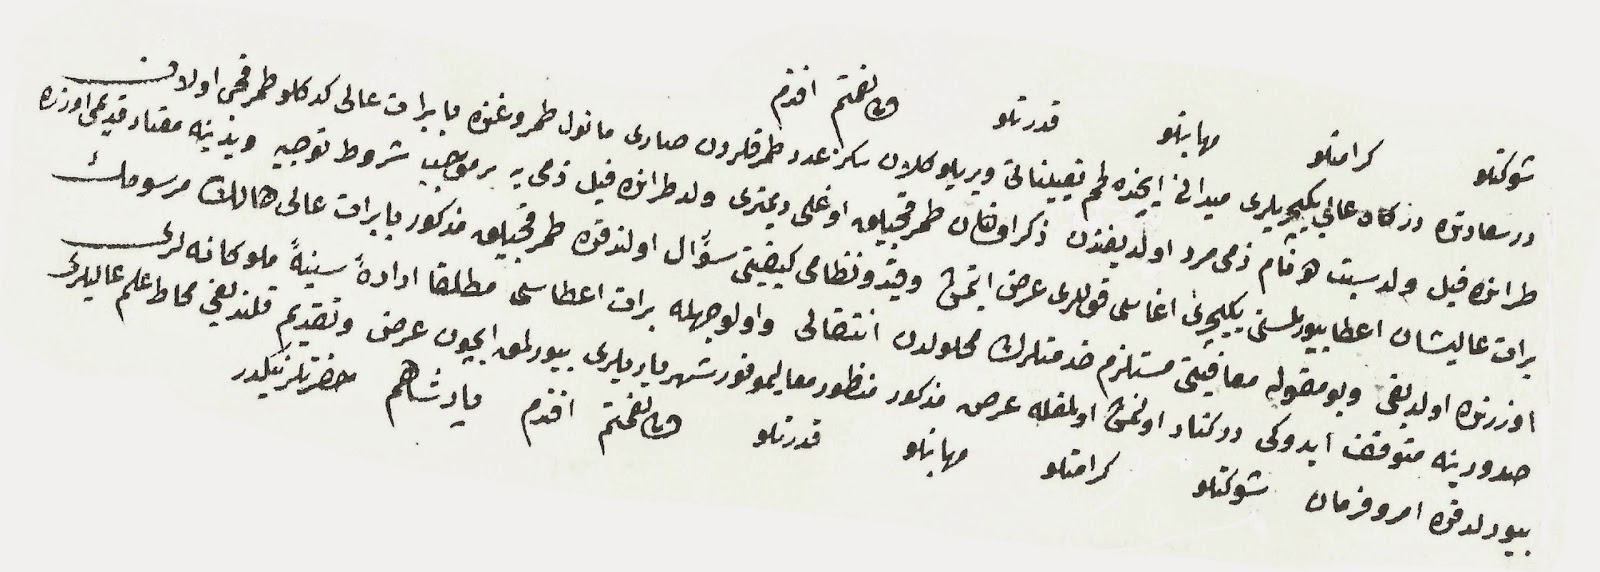 شوكتلو كرامتلو مهابتلو قدرتلو ولی نعمتم افندم
در سعادتده دركاه عالی یكیچریلری میدانی ایچنده لحم تعییناتی ویریلو كلان سكز عدد طمرقلرون صاری مانول طمروغنه با برات عالی كدكلو طمرقجی اولان
طرانده فیل ولد سبت هوفام ذمی مرد اولدیغندن ذكر اولنان طمرقجیلق اوغلی دیمتری ولد طرانده فیل ذمی یه بر موجب شروط توجیه ویدینه معتاد قدیمی اوزره
برات عالیشان اعطا بیورلمسنی یكیچری اغاسی قوللری عرض ایتمش وقید ونظامی كیفیتی سؤال اولندقده طمرقجیلق مذكور با برات عالی هالك مرسومك
اوزرنده اولدیغی وبو مقوله معافیتی مستلزم خدمتلرك محلولدن انتقالی واولوجهله برات اعطاسی مطلقا ارادهٔ سنیهٔ ملوكانه لری
صدورینه متوقف ایدوكی در كنار اولنمش اولمغله عرض مذكور منظور معالیموفور شهریاریلری بیورلمق ایچون عرض وتقدیم قلندیغی محاط علم عالیلری
بیورلدقده امر وفرمان شوكتلو كرامتلو مهابتلو قدرتلو ولی نعمتم افندم پادشاهم حضرتلرینكدر